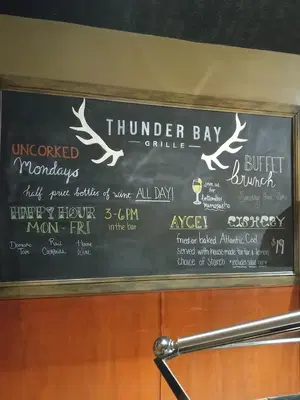 THUNDER BAY
GRILLE
UNCORKED
Mondays
half price bottles of wine ALL DAY!
HAPPY HOUR
MON-FRI
3-6PM
in the bar
Domestic
Taps
Rail
Cocktails
House
Wine
Join us
for
bottomless
mimosas
BUFFET
Brunch
AYCE! FISH FRY
fried or baked Atlantic Cod
served with house made tartar & lemon
choice of Starch
$19